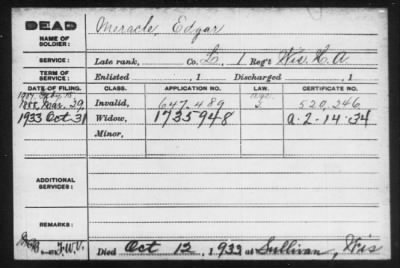 DEAD
NAME OF SOLDIER: Meracle, Edgar
SERVICE: Late rank, Co. L, 1 Reg't Wis. H. A.
TERM OF SERVICE: Enlisted , 1 Discharged , 1
DATE OF FILING. CLASS. APPLICATION NO. LAW. CERTIFICATE NO.
Mar. 29, Invalid, 647.489 520,246
1933 Oct-31 Widow, 1735948 a-2-14-34
Minor,
ADDITIONAL SERVICES:
REMARKS:
Died Oct 12, 1933 at Sullivan, Wis